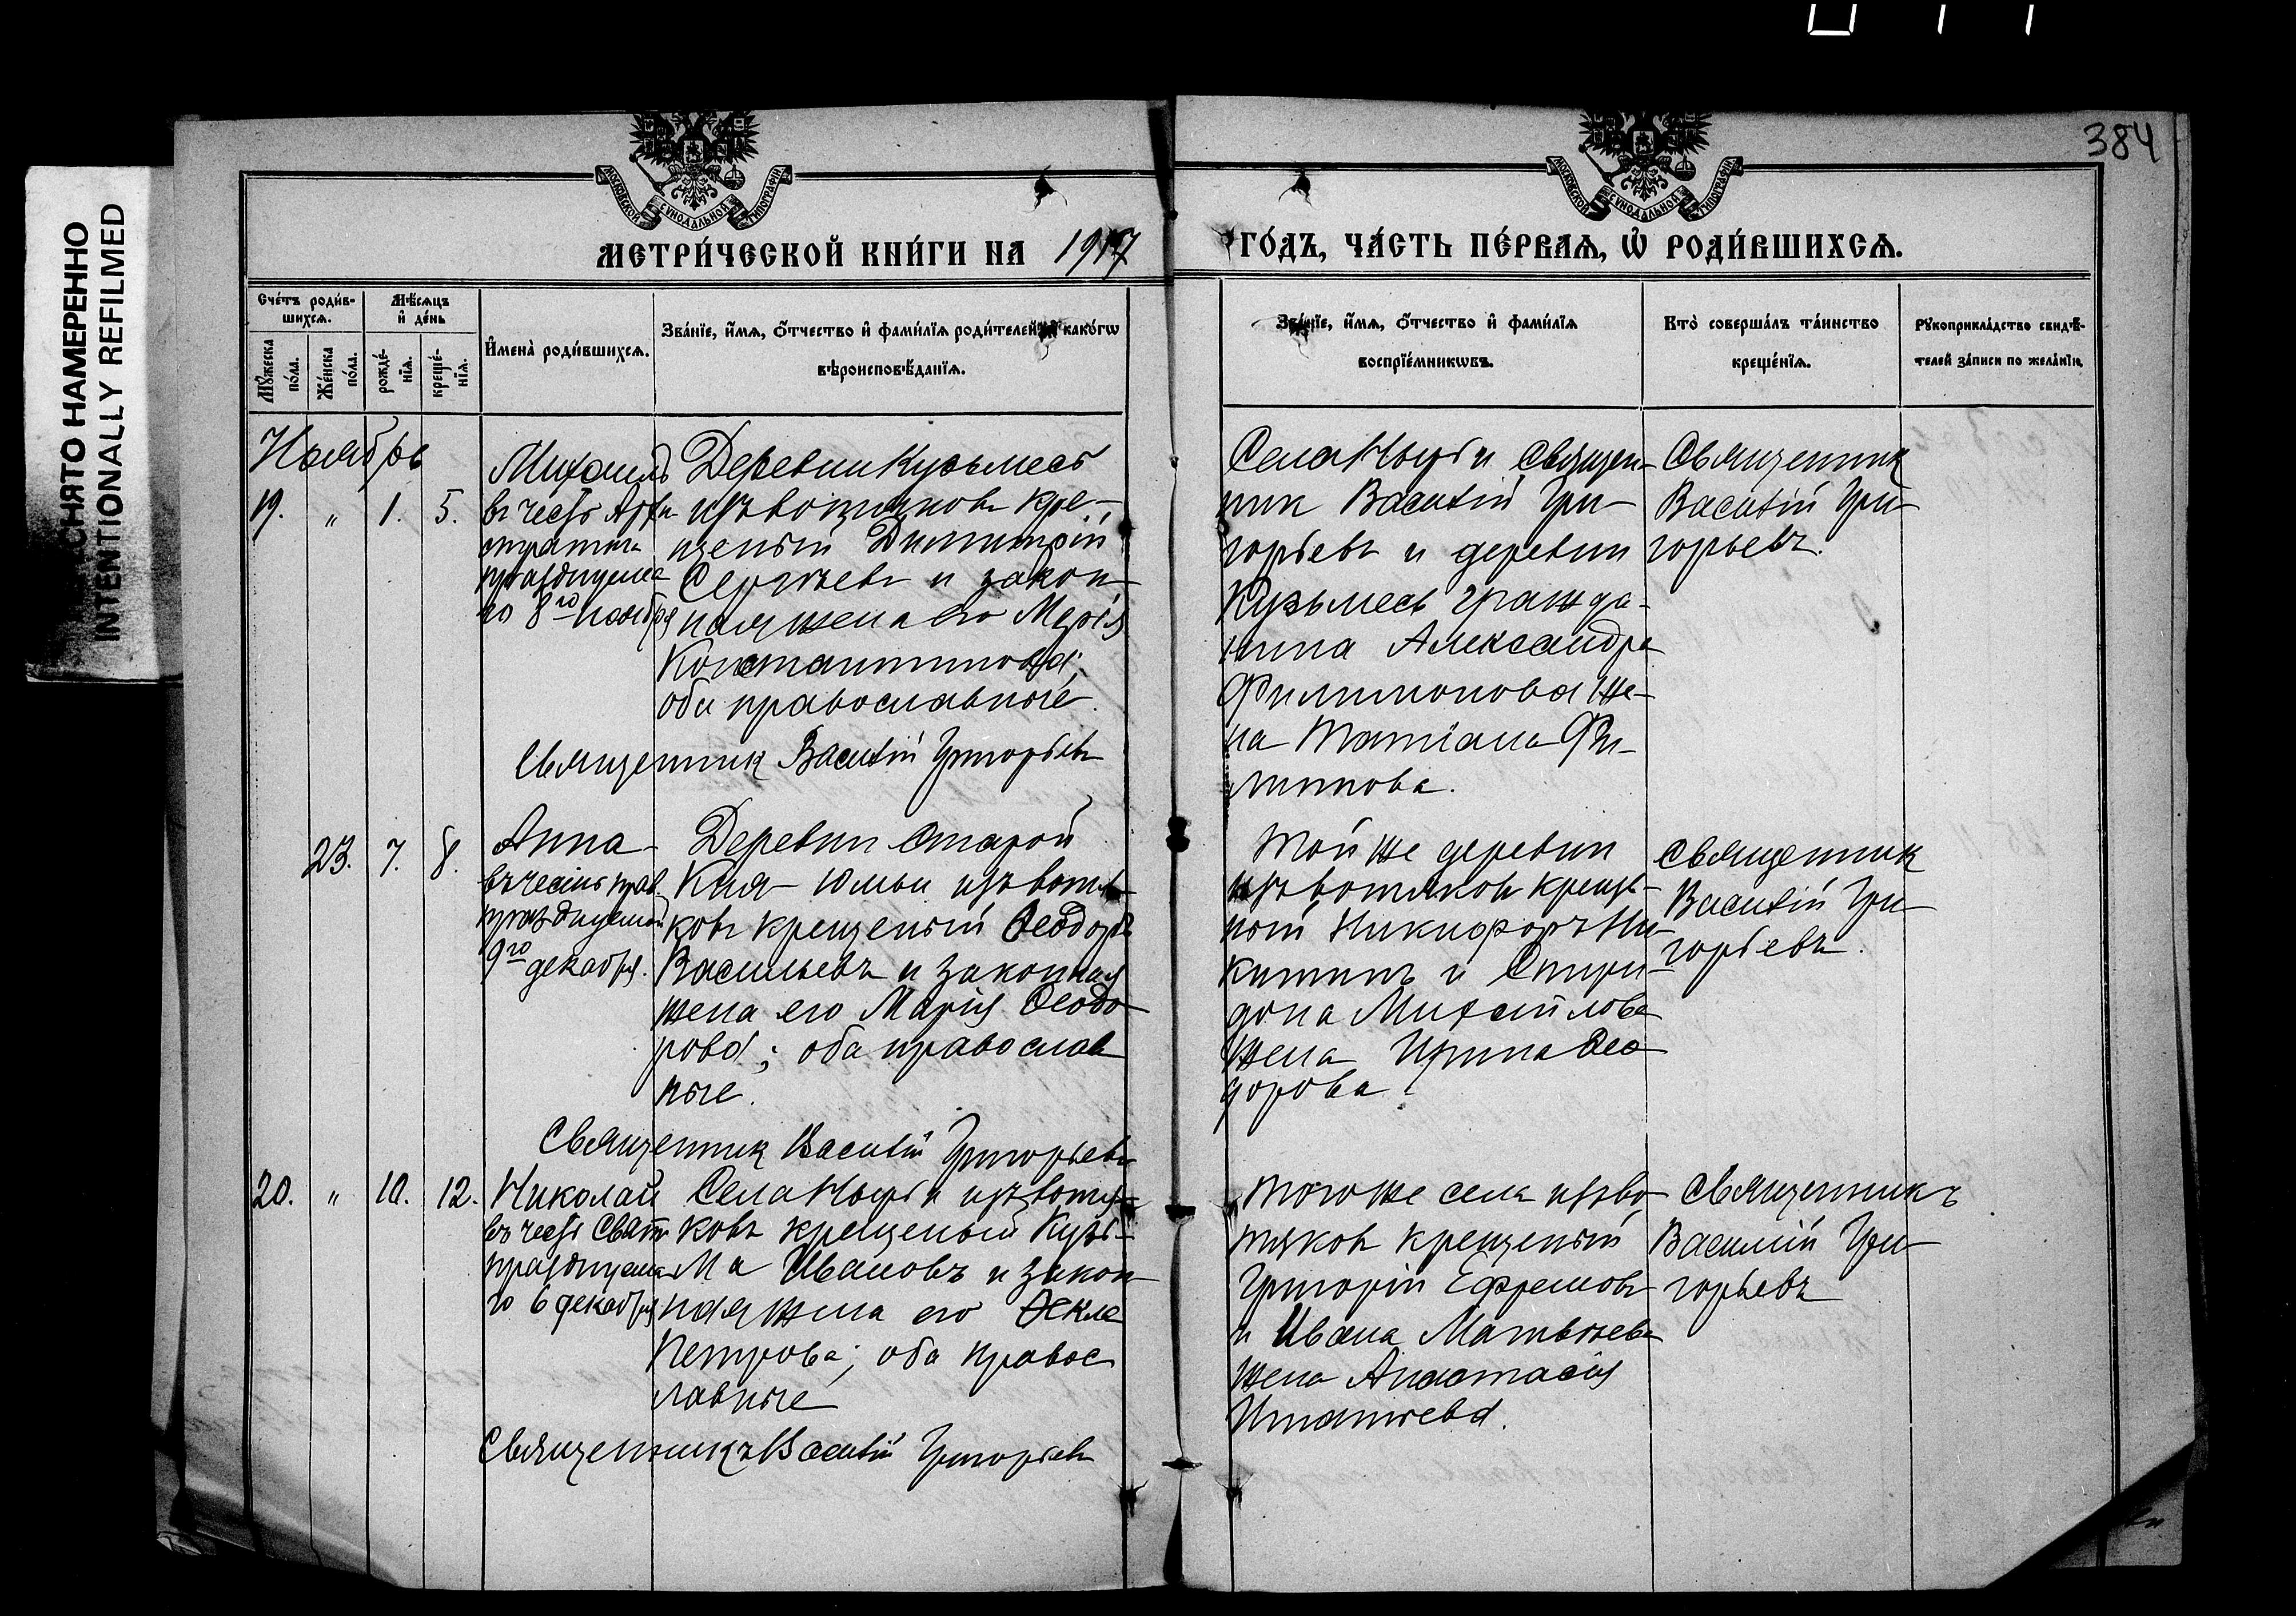 384
СНЯТО НАМЕРЕННО
INTENTIONALLY REFILMED
МОСКОВСКОЙ СѴНОДАЛЬНОЙ ТИПОГРАФІИ
МОСКОВСКОЙ СѴНОДАЛЬНОЙ ТИПОГРАФІИ
МЕТРИ́ЧЕСКОЙ КНИ́ГИ НА 1917
ГО́ДЪ, ЧА́СТЬ ПЕ́РВАѦ, Ѡ҆ РОДИ́ВШИХСѦ.
Сче́тъ роди́в-
шихсѧ.
Мѣ́сѧцъ
и҆ де́нь
Мꙋ́жеска по́ла.
Же́нска по́ла.
рожде́-
нїѧ.
креще́-
нїѧ.
И҆мена̀ роди́вшихсѧ.
Зва́нїе, и҆́мѧ, ѻ҆́тчество и҆ фами́лїѧ роди́телей и҆ како́гѡ
вѣроисповѣ́данїѧ.
Зва́нїе, и҆́мѧ, ѻ҆́тчество и҆ фами́лїѧ
воспрїе́мникѡвъ.
Кто̀ соверша́лъ та́инство
креще́нїѧ.
Рꙋкоприкла́дство свидѣ́-
телей за́писи по жела́нїю.
Ноябрь
19. " 1. 5.
Михаилъ
въ честь Архи
стратига
празднуема
го 8го ноября
Деревни Кузьмесь
изъ вотяковъ кре-
щеный Димитрій
Сергѣевъ и закон
ная жена его Марія
Константинова;
оба православные.
Священник Василій Григорьевъ
Села Нырьи Священ-
ник Василій Гри-
горьевъ и деревни
Кузьмесь гражда-
нина Александра
Филимонова же-
на Татіана Фи-
липпова.
Священник
Василій Гри-
горьевъ.
23. 7. 8.
Анна
въ честь прав.
празднуемой
9го декабря.
Деревни Старой
Кня-Юмьи изъ вотя-
ковъ крещеный Ѳеодоръ
Васильевъ и законная
жена его Марія Ѳеодо-
рова; оба православ
ные.
Священник Василій Григорьевъ
Той же деревни
изъ вотяковъ креще-
ный Никифоръ Ни-
китинъ и Спири-
дона Михайлова
жена Ирина Ѳео-
дорова.
Священник
Василій Гри-
горьевъ.
20. " 10. 12.
Николай
въ честь Свят.
празднуема
го 6 декабря
Села Нырьи изъ вотя-
ковъ крещеный Кузь-
ма Ивановъ и закон
ная жена его Ѳекла
Петрова; оба правос
лавные
Священникъ Василій Григорьевъ
Того же села изъ во-
тяковъ крещеный
Григорій Ефремовъ
и Ивана Матвѣева
жена Анастасія
Игнатьева.
Священникъ
Василій Гри-
горьевъ